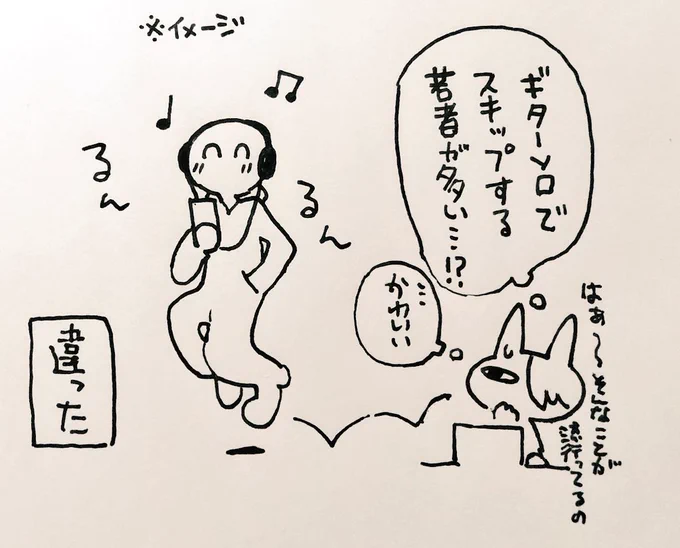 ※イメージ
ギターソロで
スキップする
若者が多い…!?
…かわいい
はぁ〜〜そんなことが
流行ってるの
るん
るん
違った